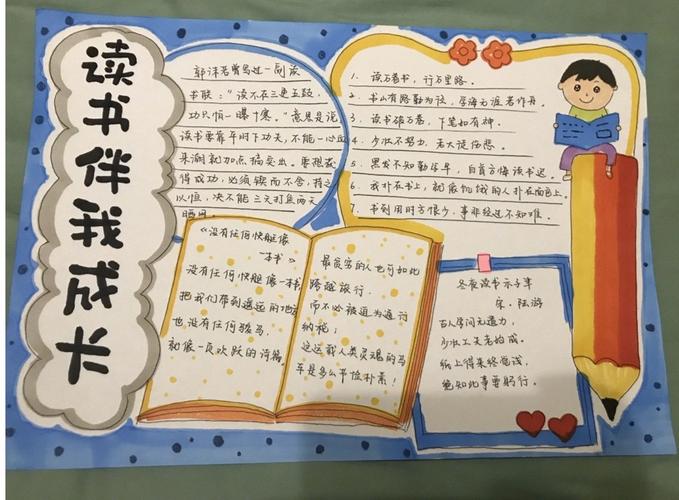 读书伴我成长
郭沫若曾写过一副读
书联："读不在三更五鼓，
功只怕一曝十寒。"意思是说
读书要靠平时下功夫，不能一心血
来潮就加点搞突出。要想获
得成功，必须锲而不舍，持之
以恒，决不能三天打鱼两天
晒网。
1. 读万卷书，行万里路。
2. 书山有路勤为径，学海无涯苦作舟。
3. 读书破万卷，下笔如有神。
4. 少壮不努力，老大徒伤悲。
5. 黑发不知勤学早，白首方悔读书迟。
6. 我扑在书上，就像饥饿的人扑在面包上。
7. 书到用时方恨少，事非经过不知难。
《没有任何快艇像
一本书》
没有任何快艇像一本书
把我们带到遥远的地方
也没有任何骏马，
就像一页欢跃的诗稿。
最贫穷的人也可如此
跨越旅行，
而不必被迫为通行
纳税；
这运载人类灵魂的马
车是多么节俭朴素！
冬夜读书示子聿
宋·陆游
古人学问无遗力，
少壮工夫老始成。
纸上得来终觉浅，
绝知此事要躬行。